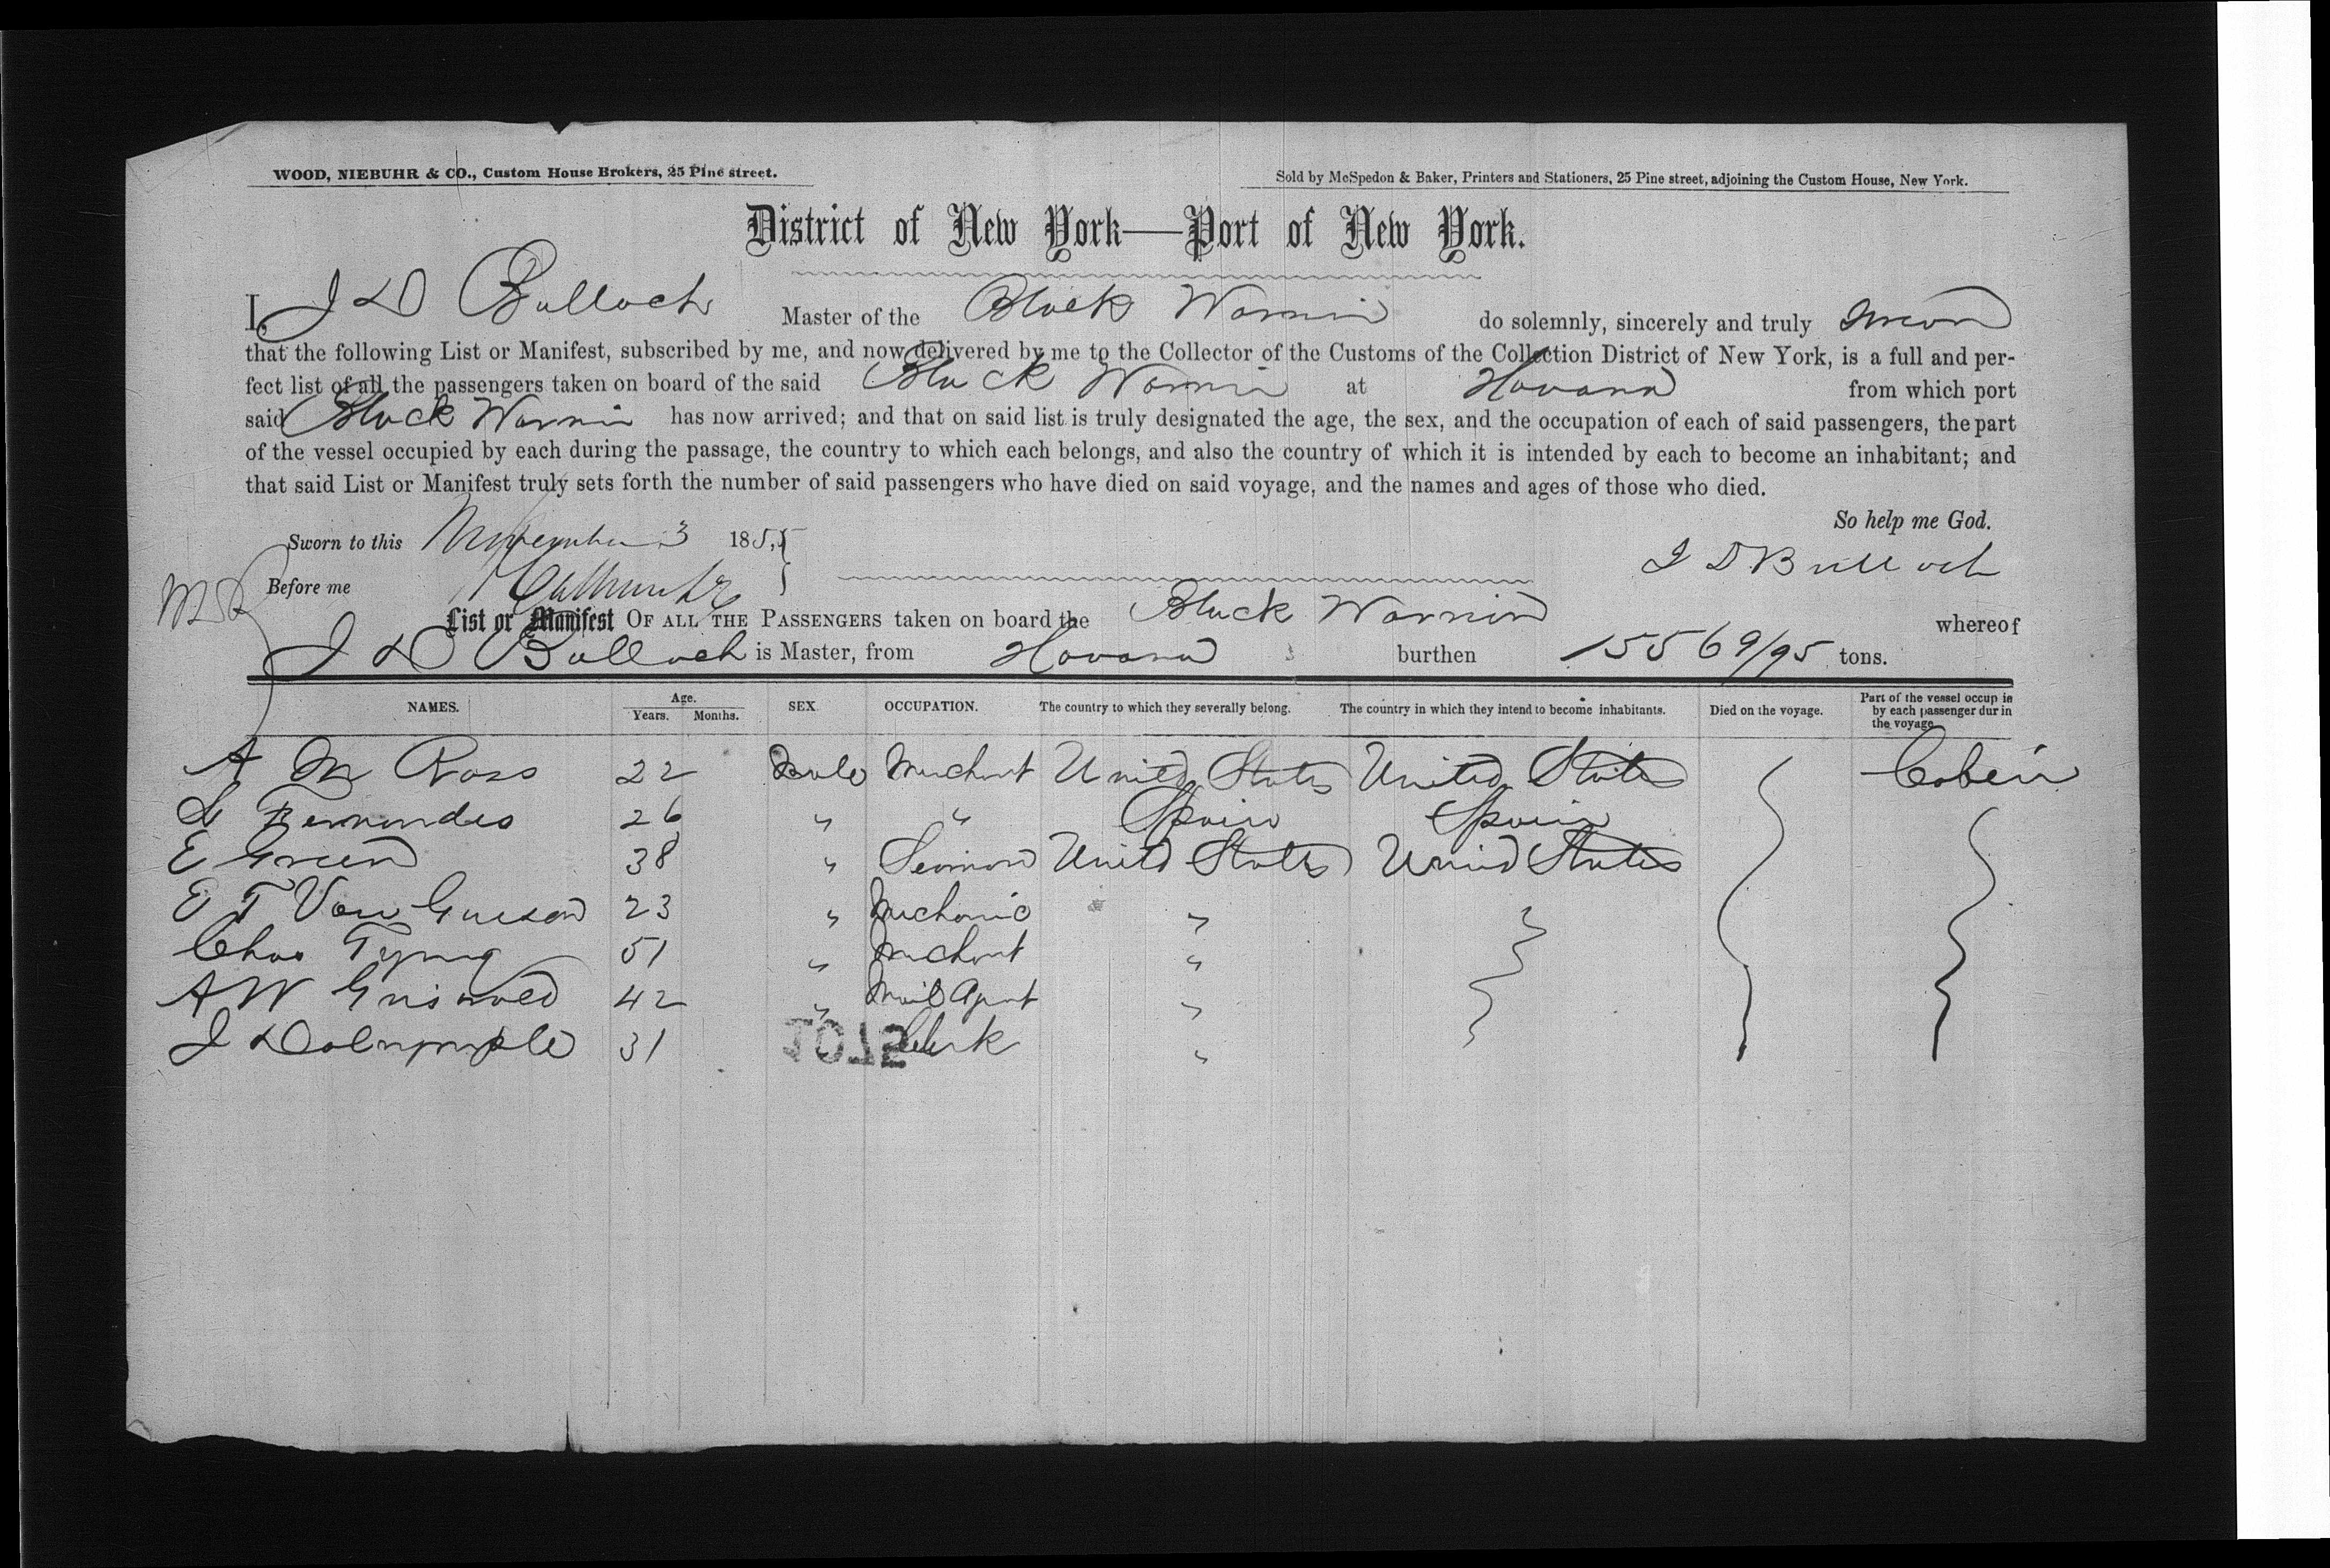 WOOD, NIEBUHR & CO., Custom House Brokers, 25 Pine street.
Sold by McSpedon & Baker, Printers and Stationers, 25 Pine street, adjoining the Custom House, New York.
District of New York—Port of New York.
I, J D Bulloch Master of the Black Warrior do solemnly, sincerely and truly swear
that the following List or Manifest, subscribed by me, and now delivered by me to the Collector of the Customs of the Collection District of New York, is a full and per-
fect list of all the passengers taken on board of the said Black Warrior at Havana from which port
said Black Warrior has now arrived; and that on said list is truly designated the age, the sex, and the occupation of each of said passengers, the part
of the vessel occupied by each during the passage, the country to which each belongs, and also the country of which it is intended by each to become an inhabitant; and
that said List or Manifest truly sets forth the number of said passengers who have died on said voyage, and the names and ages of those who died.
So help me God.
Sworn to this November 3 1855
J D Bulloch
Before me
List or Manifest OF ALL THE PASSENGERS taken on board the Black Warrior whereof
J D Bulloch is Master, from Havana burthen 1556 9/95 tons.
NAMES. Age. Years. Months. SEX. OCCUPATION. The country to which they severally belong. The country in which they intend to become inhabitants. Died on the voyage. Part of the vessel occup ie by each passenger dur in the voyage
A M Ross 22 Male Merchant United States United States Cabin
Fernandes 26 " " Spain Spain
E Green 38 " Seaman United States United States
E T Van 23 " Mechanic "
Chas Tyng 51 " Merchant "
A W Griswold 42 " Mail Agent "
J Dalrymple 31 Clerk "